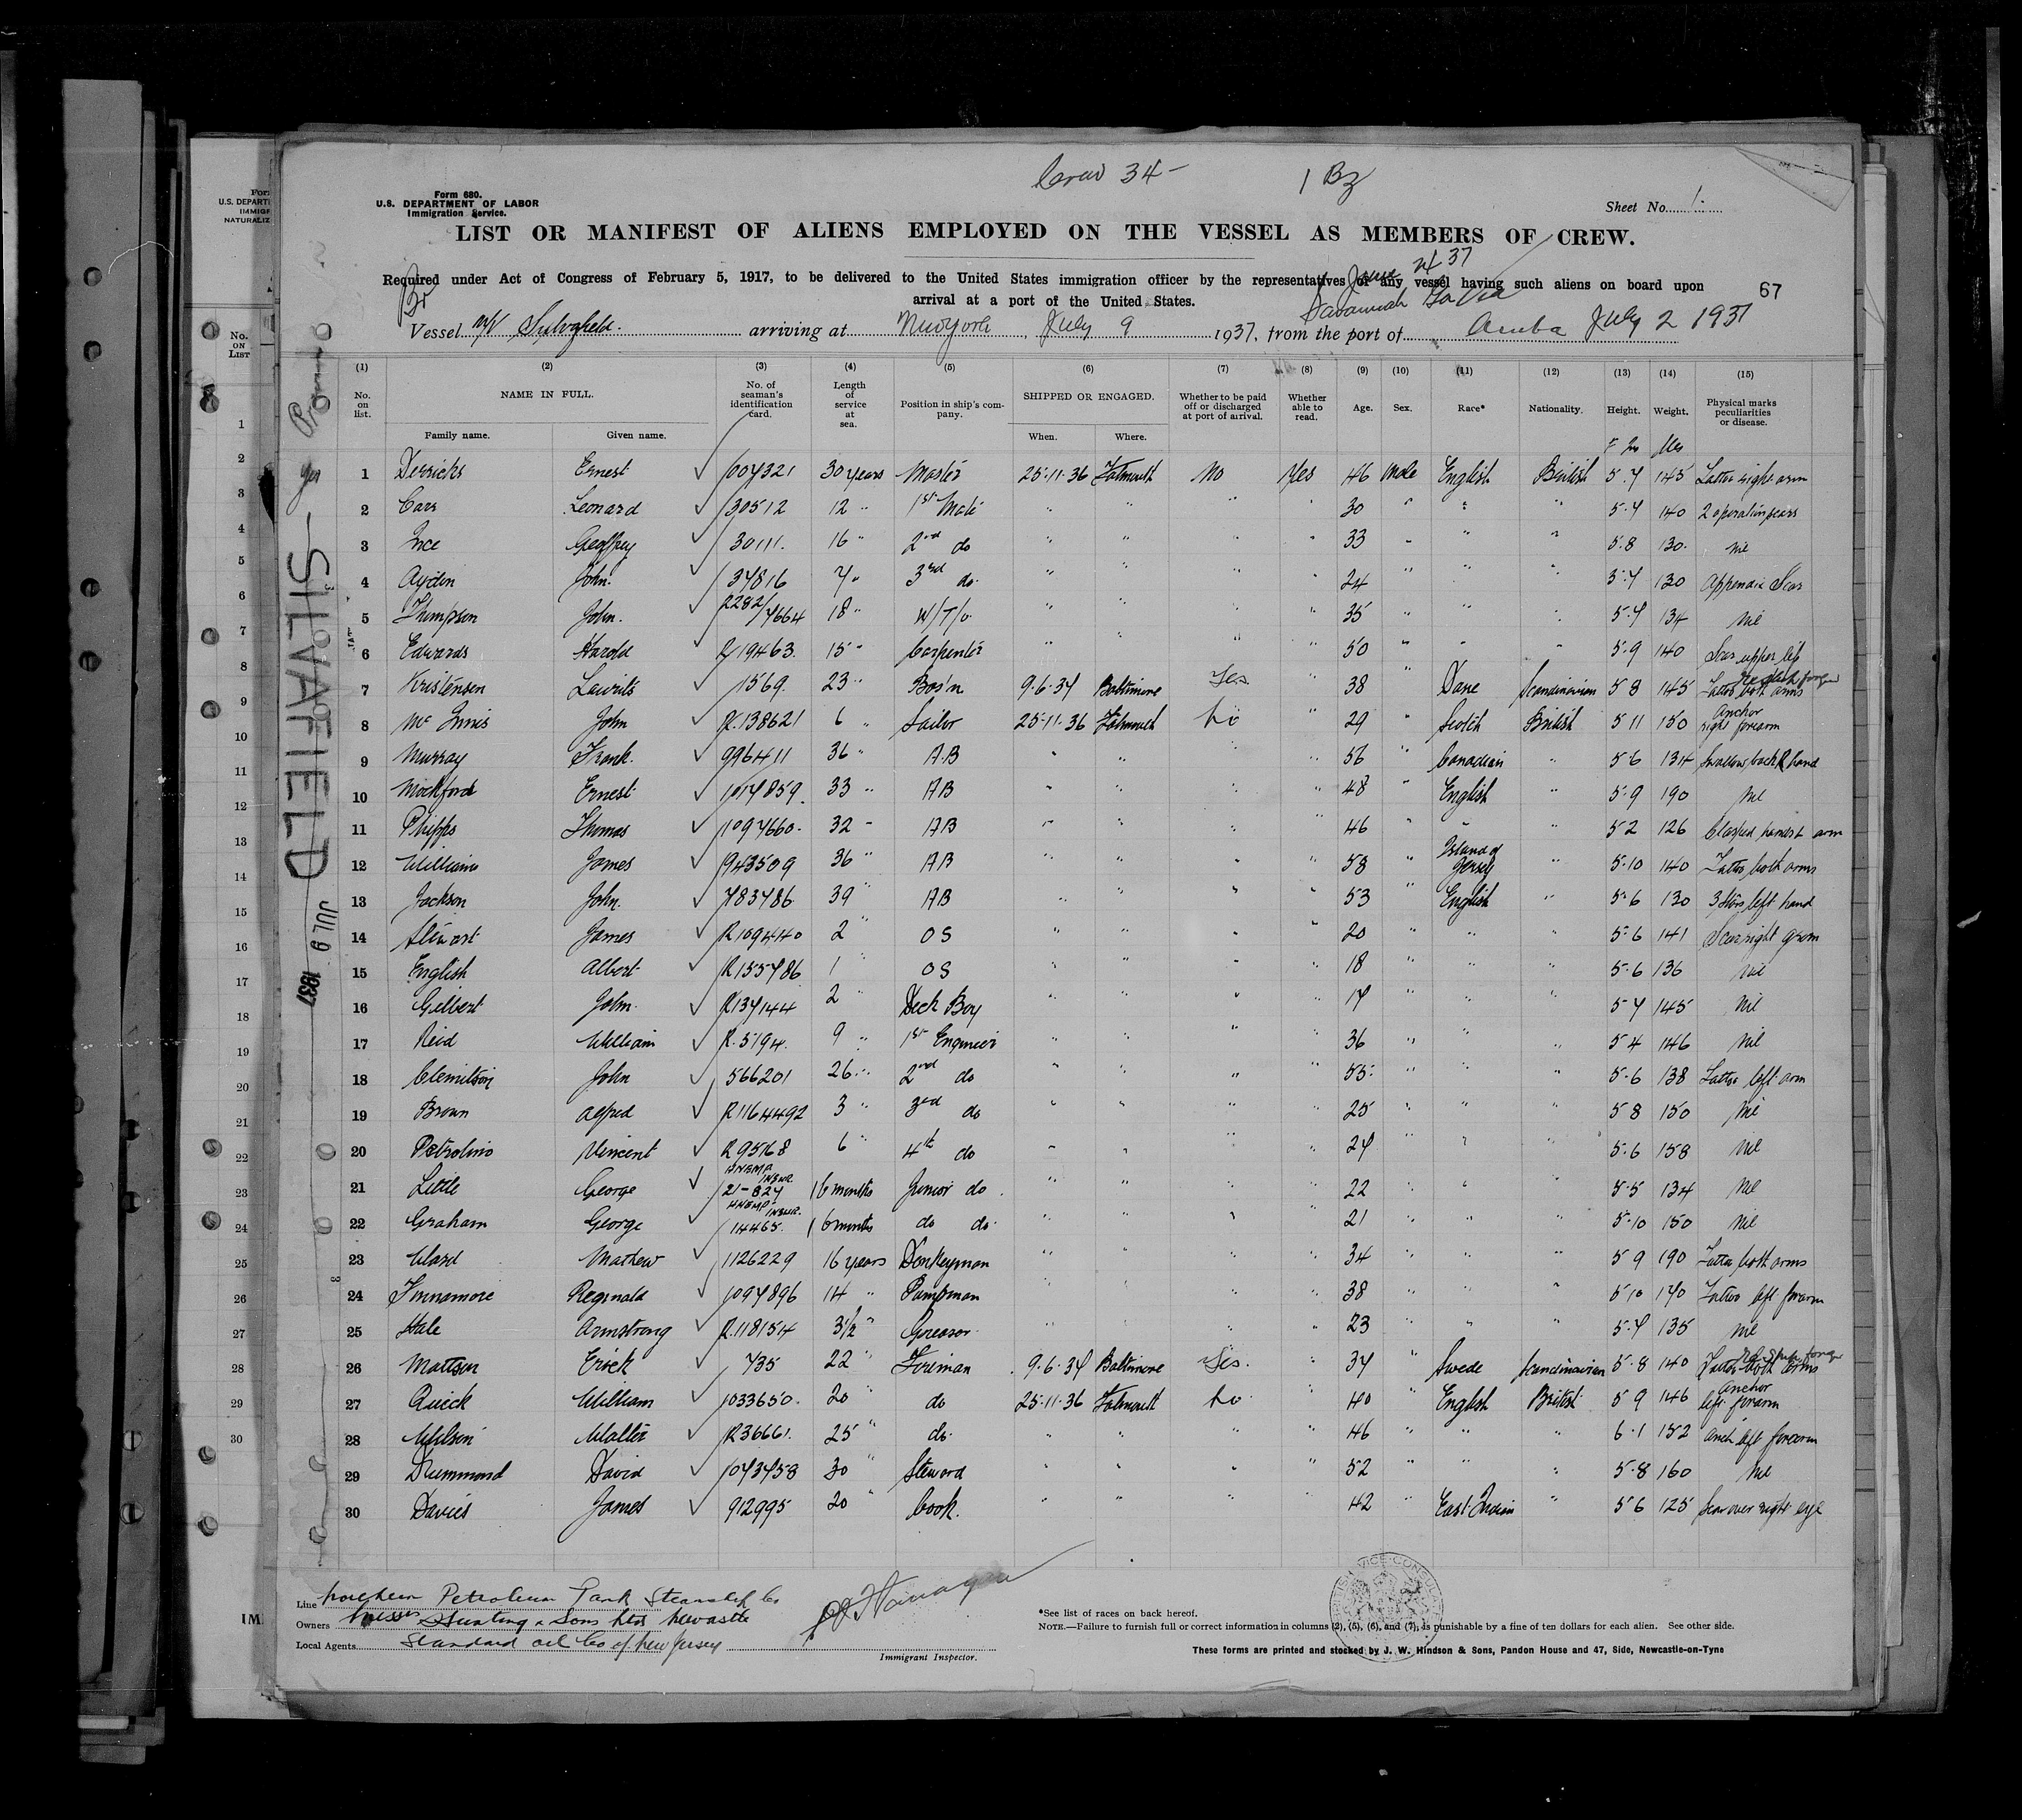 Crew 34 — 1 Bz
Form 680.
U.S. DEPARTMENT OF LABOR
Immigration Service.
Sheet No. 1.
LIST OR MANIFEST OF ALIENS EMPLOYED ON THE VESSEL AS MEMBERS OF CREW.
Required under Act of Congress of February 5, 1917, to be delivered to the United States immigration officer by the representatives of any vessel having such aliens on board upon
arrival at a port of the United States.
67
Br
Savannah Ga Via
Vessel M/V Silvafield. arriving at New York, July 9 1937, from the port of Aruba July 2 1937
(1) (2) (3) (4) (5) (6) (7) (8) (9) (10) (11) (12) (13) (14) (15)
No. on list. NAME IN FULL. No. of seaman's identification card. Length of service at sea. Position in ship's company. SHIPPED OR ENGAGED. Whether to be paid off or discharged at port of arrival. Whether able to read. Age. Sex. Race* Nationality. Height. Weight. Physical marks peculiarities or disease.
Family name. Given name. When. Where.
1 Derricks Ernest 1004321 30 years Master 25-11-36 Falmouth No Yes 46 Male English British 5-7 145 Tattoo right arm
2 Carr Leonard 30512 12 " 1st Mate " " " " 30 " " " 5-7 140 2 operation scars
3 Ince Geoffrey 30111. 16 " 2nd do " " " " 33 " " " 5-8 130 nil
4 Ayden John. 37816 7 " 3rd do. " " " " 24 " " " 5-7 130 Appendix Scar
5 Thompson John. R2282/7664 18 " W/T/o " " " " 35 " " " 5-7 134 nil
6 Edwards Harold R/19463. 15 " Carpenter " " " " 50 " " " 5-9 140 Scar upper lip
7 Kristensen Lawrits 1569. 23 " Bos'n 9-6-37 Baltimore Yes " 38 " Dane Scandinavian 5 8 145 Tattoo both arms
8 McInnis John R.138621 6 " Sailor 25-11-36 Falmouth No " 29 " Scotch British 5 11 150 Anchor right forearm
9 Murray Frank. 996411 36 " A.B " " " " 56 " Canadian " 5-6 134 Swallow back R hand
10 Mockford Ernest 1017859. 33 " AB " " " " 48 " English " 5-9 190 nil
11 Phipps Thomas 1097660. 32 " AB " " " " 46 " " " 5 2 126 Clasped hands L arm
12 Williams James 943509 36 " AB " " " " 58 " Island of Jersey " 5-10 140 Tattoo both arms
13 Jackson John. 783786 39 " AB " " " " 53 " English " 5-6 130 3 Stars left hand
14 Stewart James R109440 2 " OS " " " " 20 " " " 5-6 141 Scar right groin
15 English Albert R155786 1 " OS " " " " 18 " " " 5-6 136 nil
16 Gilbert John. R137144 2 " Deck Boy " " " " 17 " " " 5 7 145 nil
17 Reid William R.5194. 9 " 1st Engineer " " " " 36 " " " 5 4 146 nil
18 Clemitson John 566201 26 " 2nd do " " " " 55 " " " 5-6 138 Tattoo left arm
19 Brown Alfred R1164492 3 " 3rd do " " " " 25 " " " 5 8 150 nil
20 Petrolino Vincent R95168 6 " 4th do " " " " 27 " " " 5-6 158 nil
21 Little George 21-827 6 months Junior do " " " " 22 " " " 5-5 134 nil
22 Graham George 14465. 6 months do do " " " " 21 " " " 5-10 150 nil
23 Ward Mathew 1126229 16 years Donkeyman " " " " 34 " " " 5 9 190 Tattoo both arms
24 Finnamore Reginald 1097896 14 " Pumpman " " " " 38 " " " 5-10 170 Tattoo left forearm
25 Hale Armstrong R.118154 3½ " Greaser " " " " 23 " " " 5-7 135 nil
26 Mattson Erick 735 22 " Fireman 9-6-37 Baltimore Yes. " 37 " Swede Scandinavian 5-8 140 Tattoo both arms
27 Quick William 1033650. 20 " do 25-11-36 Falmouth No " 40 " English British 5 9 146 Anchor left forearm
28 Wilson Walter R36661. 25 " do. " " " " 46 " " " 6-1 152 anch left forearm
29 Drummond David 1073758 30 " Steward " " " " 52 " " " 5-8 160 nil
30 Davies James 912995 20 " Cook. " " " " 42 " East Indian " 5 6 125 Scar over right eye
SILVAFIELD
JUL 9 1937
Line Northern Petroleum Tank Steamship Co
Owners Messrs Hunting & Sons Ltd Newcastle
Local Agents Standard Oil Co of New Jersey
Immigrant Inspector.
*See list of races on back hereof.
NOTE.—Failure to furnish full or correct information in columns (2), (5), (6), and (7), is punishable by a fine of ten dollars for each alien. See other side.
These forms are printed and stocked by J. W. Hindson & Sons, Pandon House and 47, Side, Newcastle-on-Tyne